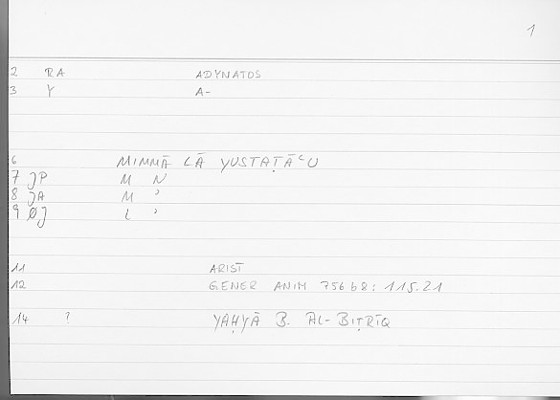 1
2 RA ADYNATOS
3 Y A-
6 MIMMĀ LĀ YUSTAṬĀʿU
7 JP M N
8 JA M ʾ
9 ØJ L ʾ
11 ARIST
12 GENER ANIM 756b2: 115.21
14 ? YAḤYĀ B. AL-BIṬRĪQ